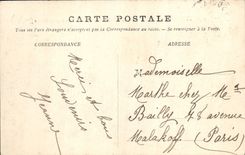 CARTE POSTALE
Tous les Pays étrangers n'acceptent pas la Correspondance au recto. — Se renseigner à la Poste.
CORRESPONDANCE
ADRESSE
Merci et bons
Jeanne
Mademoiselle
Marthe chez Me
Bailly 78 avenue
Malakoff (Paris)